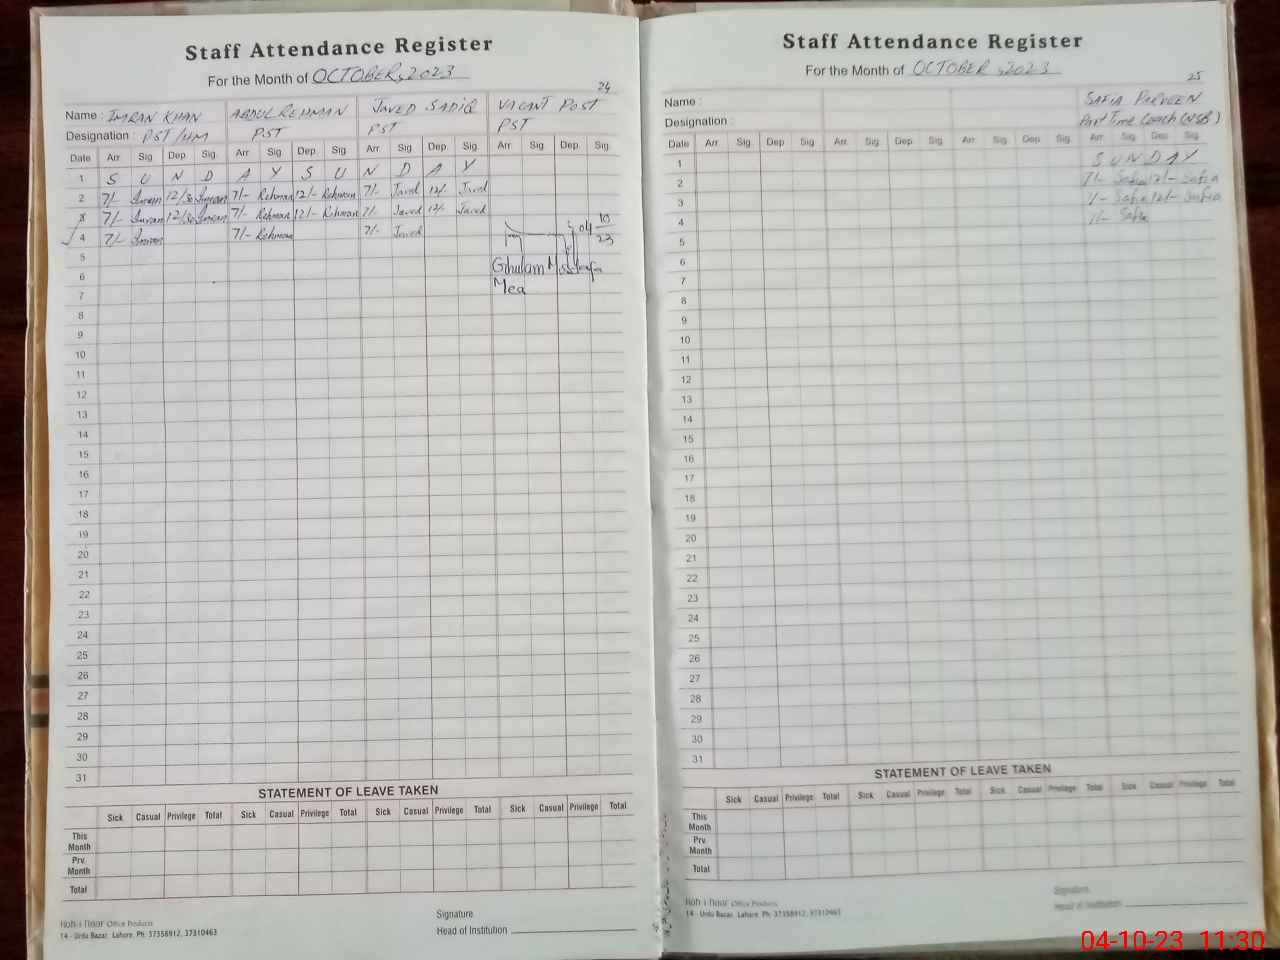 Staff Attendance Register
For the Month of OCTOBER, 2023
24
Name : IMRAN KHAN ABDUL REHMAN JAVED SADIQ VACANT POST
Designation : PST/HM PST PST PST
Date Arr. Sig. Dep. Sig. Arr. Sig. Dep. Sig. Arr. Sig. Dep. Sig. Arr. Sig. Dep. Sig.
1 S U N D A Y S U N D A Y
2 7/- Imran 12/30 Imran 7/- Rehman 12/- Rehman 7/- Javed 12/- Javed
3 7/- Imran 12/30 Imran 7/- Rehman 12/- Rehman 7/- Javed 12/- Javed
4 7/- Imran 7/- Rehman 7/- Javed 04 10 23
5
6 Ghulam Mustafa
7 Mea
8
9
10
11
12
13
14
15
16
17
18
19
20
21
22
23
24
25
26
27
28
29
30
31
STATEMENT OF LEAVE TAKEN
Sick Casual Privilege Total Sick Casual Privilege Total Sick Casual Privilege Total Sick Casual Privilege Total
This Month
Prv. Month
Total
Koh-i-Noor Office Products
14 - Urdu Bazar, Lahore, Ph: 37358912, 37310463
Signature.
Head of Institution
Staff Attendance Register
For the Month of OCTOBER, 2023
25
Name : SAFIA PARVEEN
Designation : Part Time Coach (NSB)
Date Arr. Sig. Dep. Sig. Arr. Sig. Dep. Sig. Arr. Sig. Dep. Sig. Arr. Sig. Dep. Sig.
1 S U N D A Y
2 7/- Safia 12/- Safia
3 7/- Safia 12/- Safia
4 7/- Safia
5
6
7
8
9
10
11
12
13
14
15
16
17
18
19
20
21
22
23
24
25
26
27
28
29
30
31
STATEMENT OF LEAVE TAKEN
Sick Casual Privilege Total Sick Casual Privilege Total Sick Casual Privilege Total Sick Casual Privilege Total
This Month
Prv. Month
Total
Koh-i-Noor Office Products
14 - Urdu Bazar, Lahore, Ph: 37358912, 37310463
Signature.
Head of Institution
04-10-23 11:30